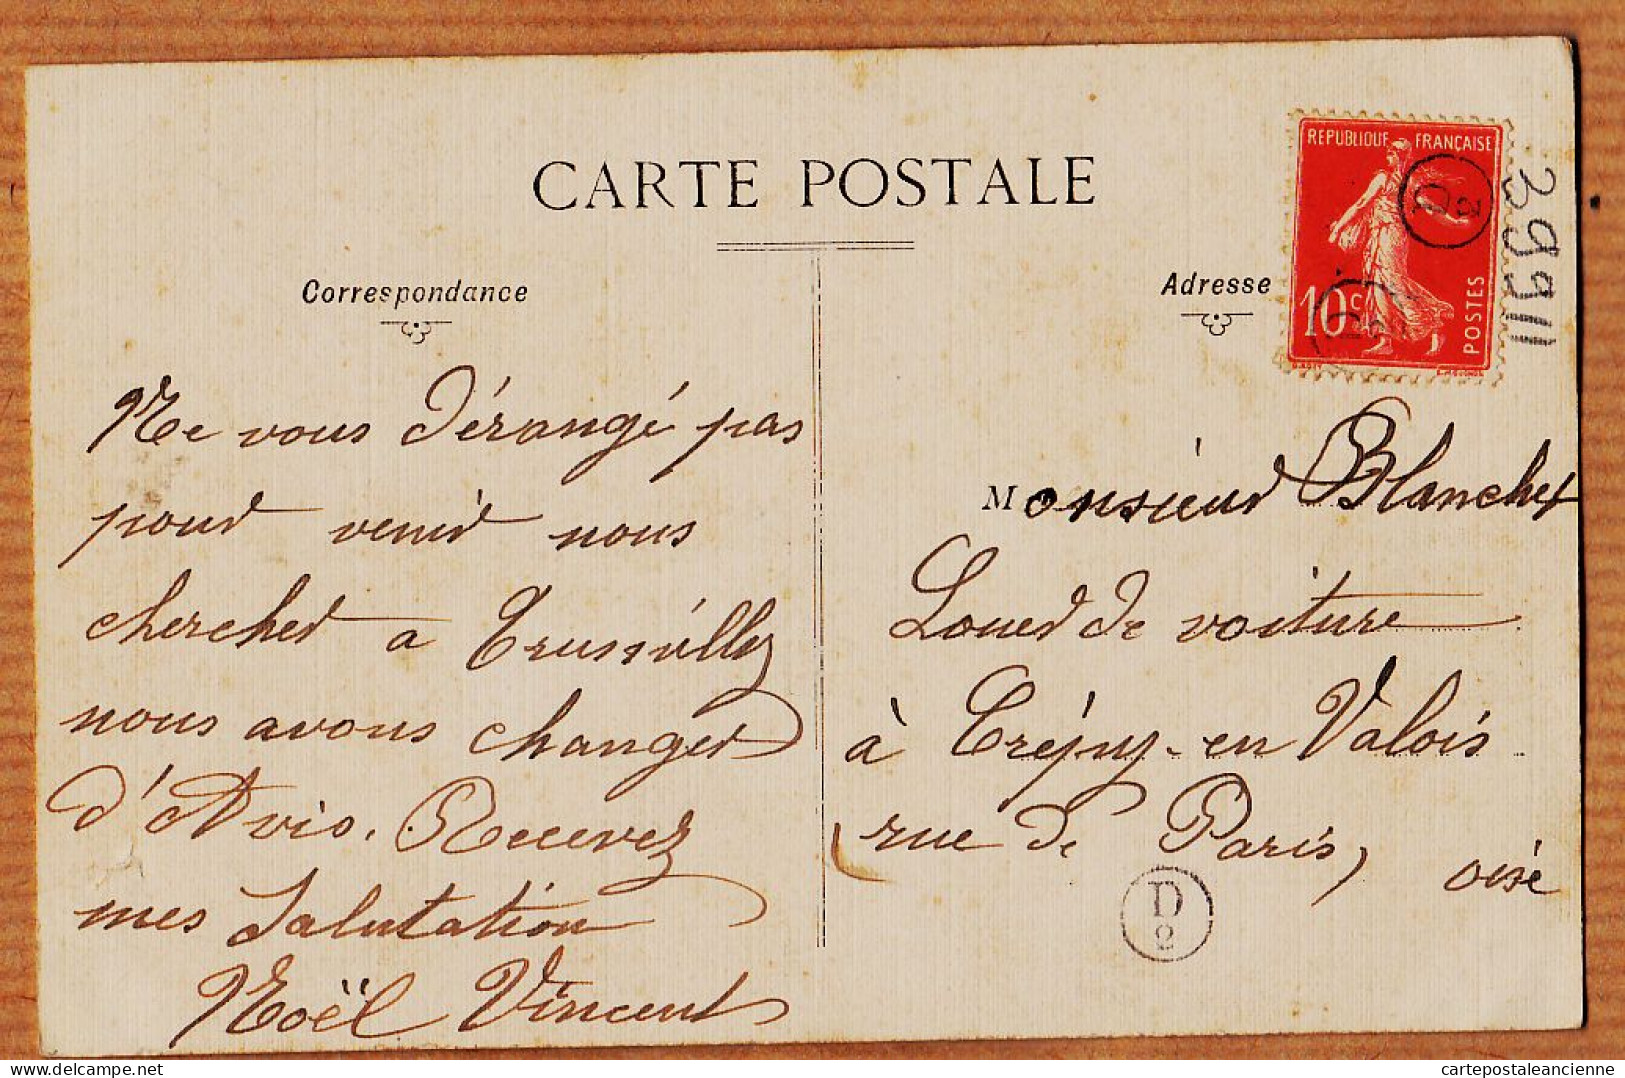 CARTE POSTALE
Correspondance
Adresse
REPUBLIQUE FRANÇAISE
10c
POSTES
Ne vous dérangé pas
pour venir nous
chercher a
nous avons changer
d'Avis. Recevez
mes Salutation
Noël Vincent
Monsieur Blanchet
Loueur de voiture
à Crépy-en Valois
rue de Paris, oise
D
2
cartepostaleancienne